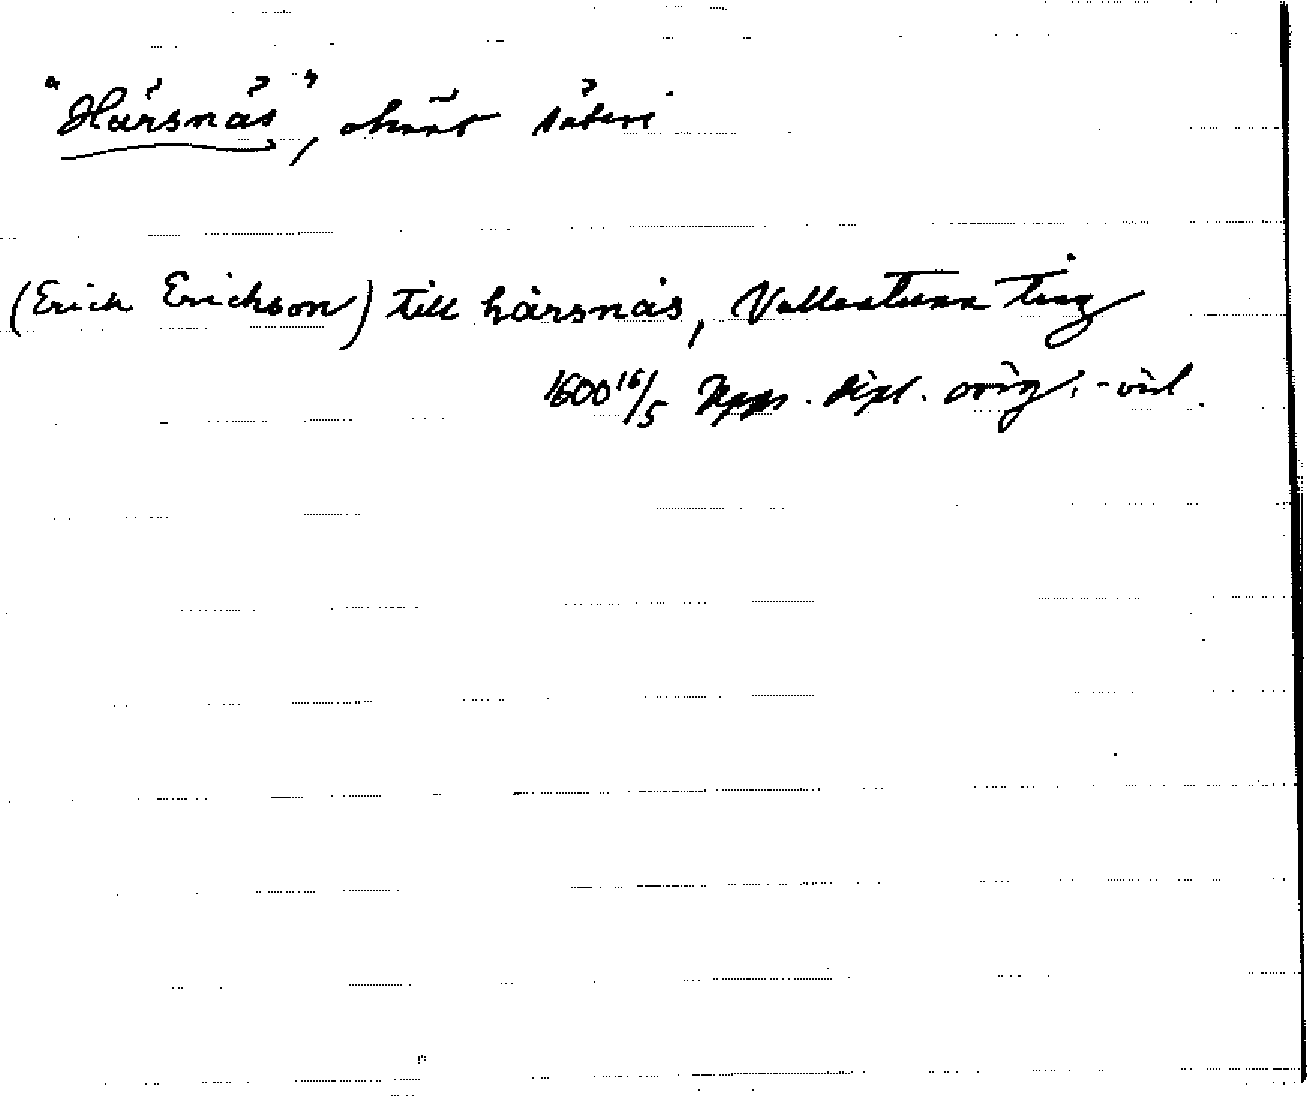 "Hårsnäs", okänt säteri
(Erich Erichson) till hårsnäs, Vallentuna ting
1600 16/5 Upps. dipl. orig.